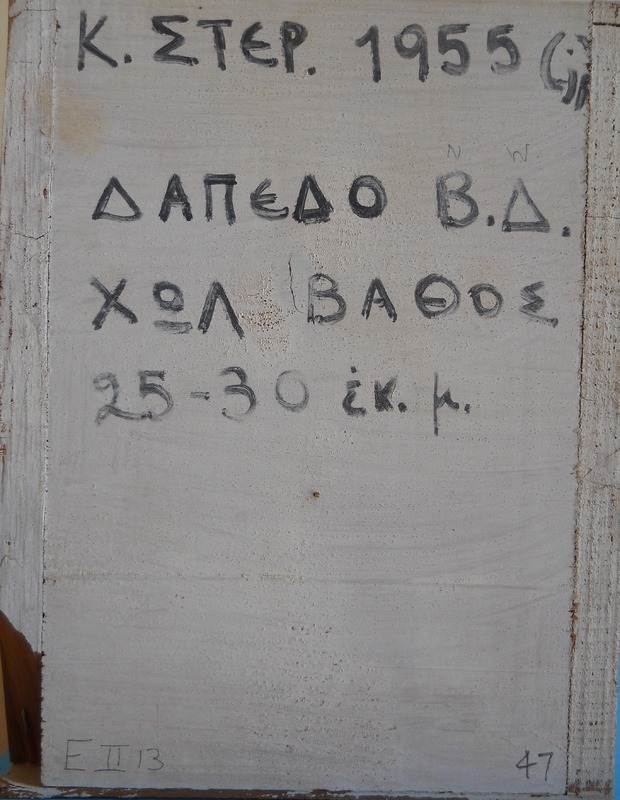 Κ. ΣΤΕΡ. 1955 (;)
N W
ΔΑΠΕΔΟ Β.Δ.
ΧΩΛ ΒΑΘΟΣ
25-30 ἑκ. μ.
E II 13
47